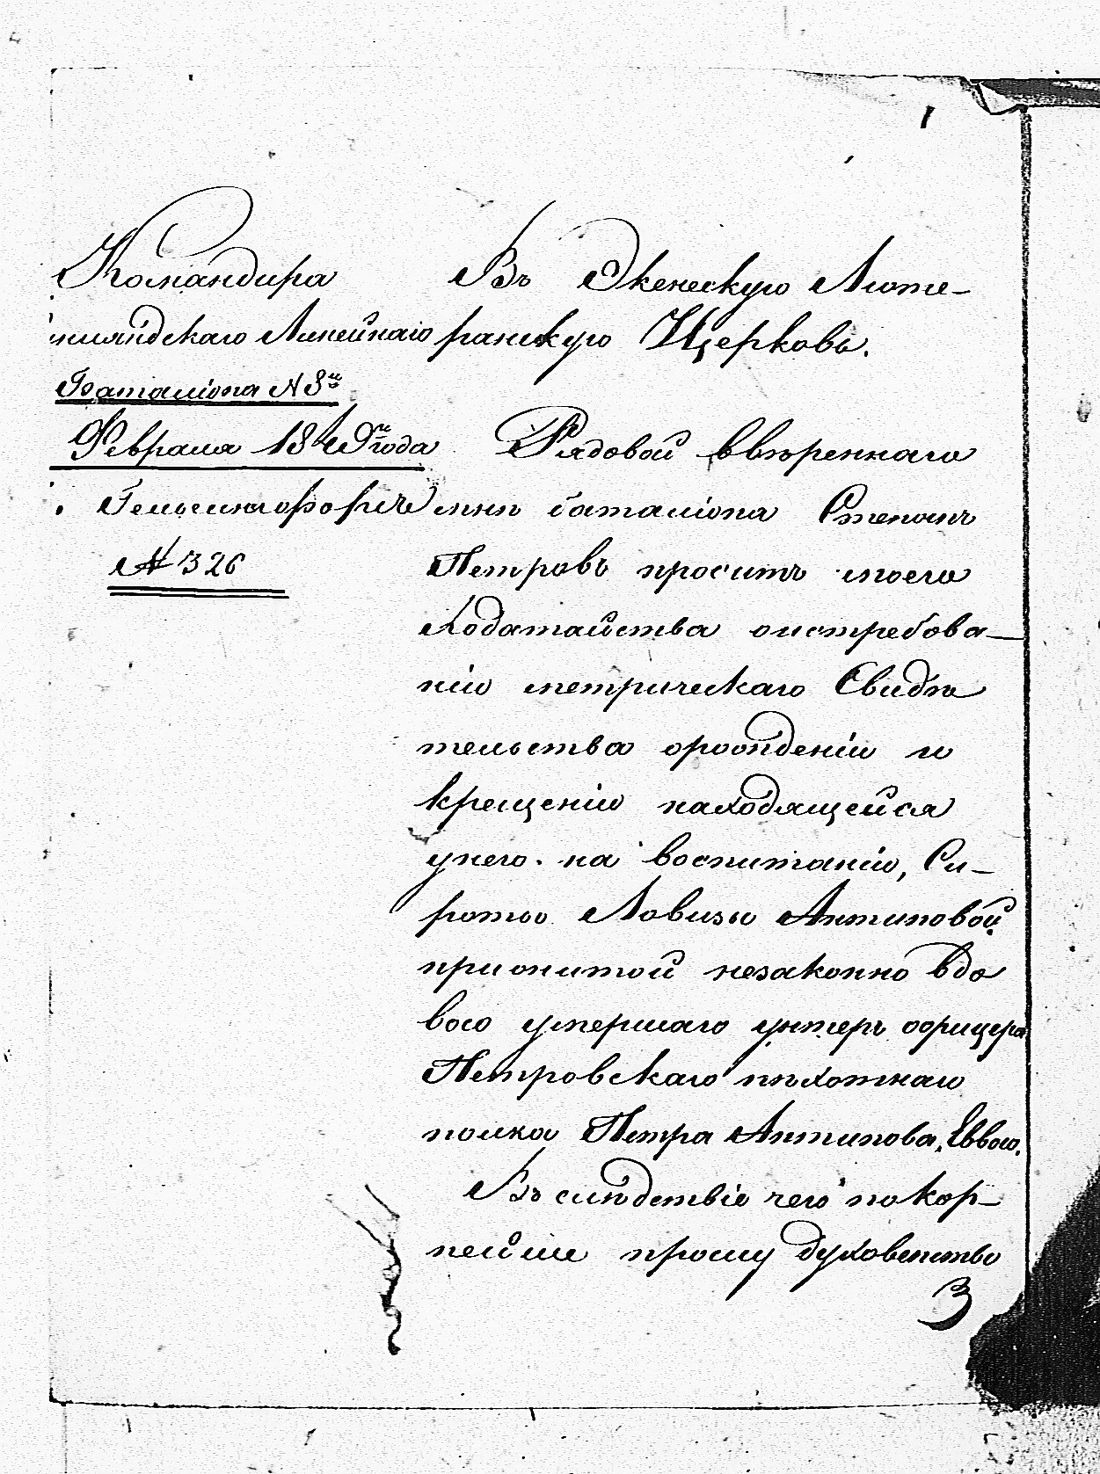 1
Командира
инляндскаго Линейнаго
Баталіона №8го
Февраля 1849го года
Гельсингфорсъ
№326
Въ Экенескую Люте-
ранскую Церковь.
Рядовой ввѣреннаго
мнѣ баталіона Степанъ
Петровъ проситъ моего
ходатайства оистребова-
ніи метрическаго Свидѣ
тельства орожденіи и
крещеніи находящейся
унего на воспитаніи, Си-
роты Ловизы Антиповой,
прижитой незаконно вдо
вою умершаго унтеръ офицера
Петровскаго пѣхотнаго
полка Петра Антипова, Еввою.
Въ слѣдствіе чего покор-
нейше прошу духовенство
3